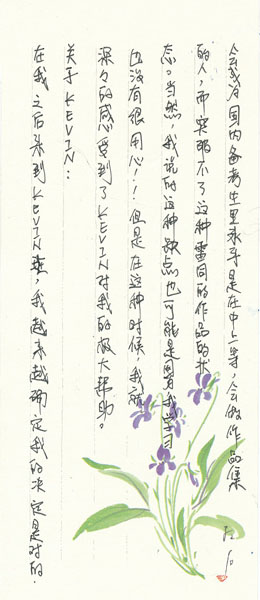 会或者国内备考生里水平是在中上等,会做作品集
的人,而突破不了这种雷同的作品的状
态。当然,我说的这种缺点也可能是因为我学习
也没有很用心!!但是在这种时候,我
深深的感受到了KEVIN对我的极大帮助。
关于KEVIN:
在我之后来到KEVIN班,我越来越确定我的决定是对的.